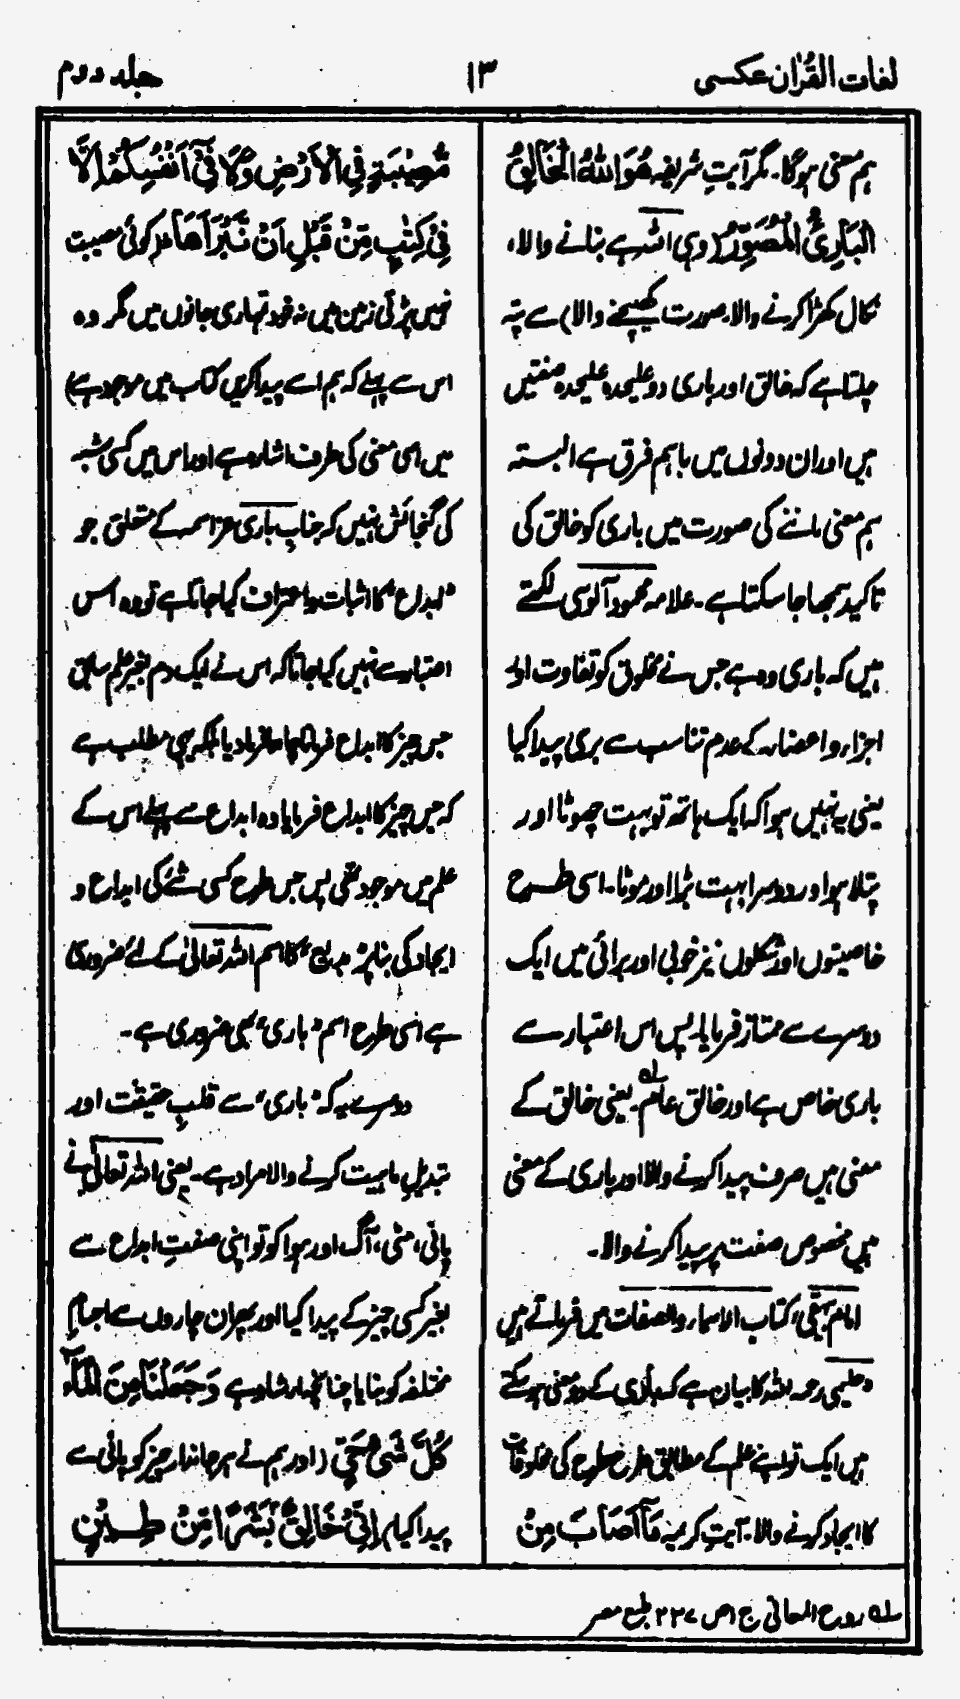 لغات القرآن عکسی
۱۳
جلد دوم
ہم معنی ہوگا۔ مگر آیتِ شریفہ هُوَ اللّٰهُ الْخَالِقُ
الْبَارِئُ الْمُصَوِّرُ (وہی اللہ ہے بنانے والا،
نکال کھڑا کرنے والا، صورت کھینچنے والا) سے پتہ
چلتا ہے کہ خالق اور باری دو علیحدہ علیحدہ صفتیں
ہیں اور ان دونوں میں باہم فرق ہے البتہ
ہم معنی ماننے کی صورت میں باری کو خالق کی
تاکید سمجھا جا سکتا ہے۔ علامہ محمود آلوسی لکھتے
ہیں کہ باری وہ ہے جس نے مخلوق کو تفاوت اور
اجزاء و اعضاء کے عدم تناسب سے بری پیدا کیا
یعنی یہ نہیں ہوا کہ ایک ہاتھ تو بہت چھوٹا اور
پتلا ہو اور دوسرا بہت بڑا اور موٹا۔ اسی طرح
خاصیتوں اور شکلوں نیز خوبی اور برائی میں ایک
دوسرے سے ممتاز فرمایا۔ پس اس اعتبار سے
باری خاص ہے اور خالق عام۔ یعنی خالق کے
معنی ہیں صرف پیدا کرنے والا اور باری کے معنی
ہیں مخصوص صفت پر پیدا کرنے والا۔
امام بیہقی، کتاب الاسماء والصفات میں فرماتے ہیں
حلیمی رحمہ اللہ کا بیان ہے کہ باری کے دو معنی ہو سکتے
ہیں ایک تو اپنے علم کے مطابق طرح طرح کی مخلوقات
کا ایجاد کرنے والا۔ آیتِ کریمہ مَآ اَصَابَ مِنْ
مُّصِيْبَةٍ فِي الْاَرْضِ وَلَا فِيْٓ اَنْفُسِكُمْ اِلَّا
فِيْ كِتٰبٍ مِّنْ قَبْلِ اَنْ نَّبْرَاَهَا (کوئی مصیبت
نہیں پڑتی زمین میں نہ خود تمہاری جانوں میں مگر وہ
اس سے پہلے کہ ہم اسے پیدا کریں کتاب میں موجود ہے)
میں اسی معنی کی طرف اشارہ ہے اور اس میں کسی شبہ
کی گنجائش نہیں کہ جنابِ باری عز اسمہ کے متعلق جو
"ابداع" کا اثبات و اعتراف کیا جاتا ہے تو وہ اس
اعتبار سے نہیں کیا جاتا کہ اس نے ایک دم بغیر علم سابق
جس چیز کا ابداع فرمانا چاہا فرما دیا بلکہ یہی مطلب ہے
کہ جس چیز کا ابداع فرمایا وہ ابداع سے پہلے اس کے
علم میں موجود تھی پس جس طرح کسی شئے کی ابداع و
ایجاد کی بنا پر "بدیع" کا اسم اللہ تعالیٰ کے لئے ضروری
ہے اسی طرح اسم "باری" بھی ضروری ہے۔
دوسرے یہ کہ "باری" سے قلبِ حقیقت اور
تبدیلِ ماہیت کرنے والا مراد ہے۔ یعنی اللہ تعالیٰ نے
پانی، مٹی، آگ اور ہوا کو تو اپنی صفتِ ابداع سے
بغیر کسی چیز کے پیدا کیا اور پھر ان چاروں سے اجسامِ
مختلفہ کو بنایا چنانچہ ارشاد ہے وَجَعَلْنَا مِنَ الْمَآءِ
كُلَّ شَيْءٍ حَيٍّ (اور ہم نے ہر جاندار چیز کو پانی سے
پیدا کیا) اِنِّيْ خَالِقٌۢ بَشَرًا مِّنْ طِيْنٍ
لہ روح المعانی ج ۱ ص ۲۳۷ طبع مصر